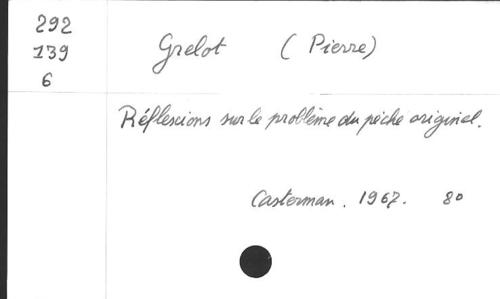 292
139
6
Grelot (Pierre)
Réflexions sur le problème du péché originel.
Casterman. 1967. 80